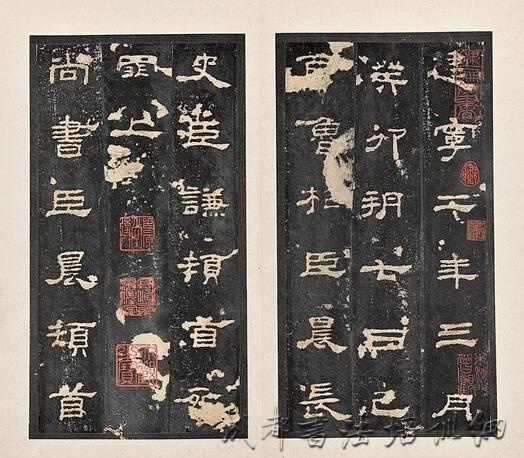 建寧二年三月
癸卯朔七日己
酉魯相臣晨長
史臣謙頓首死
罪上
尚書臣晨頓首
成都書法培訓網